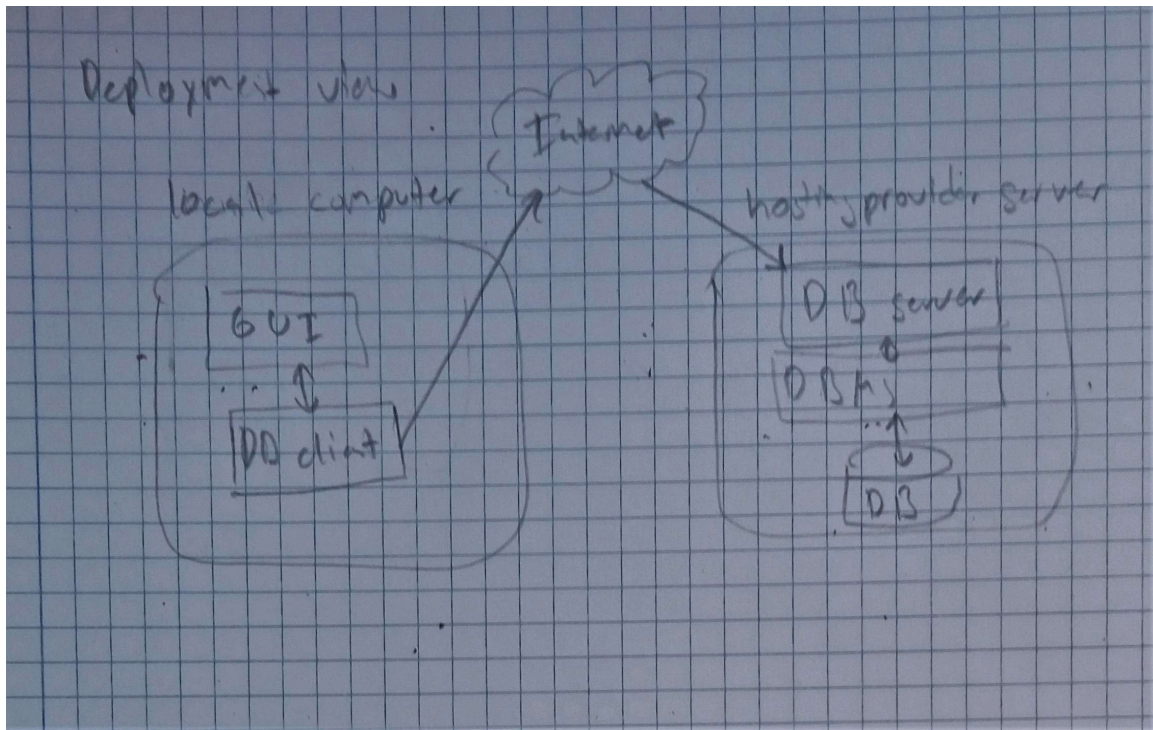 Deployment view
Internet
local computer
hosting provider server
GUI
DB client
DB server
DBMS
DB